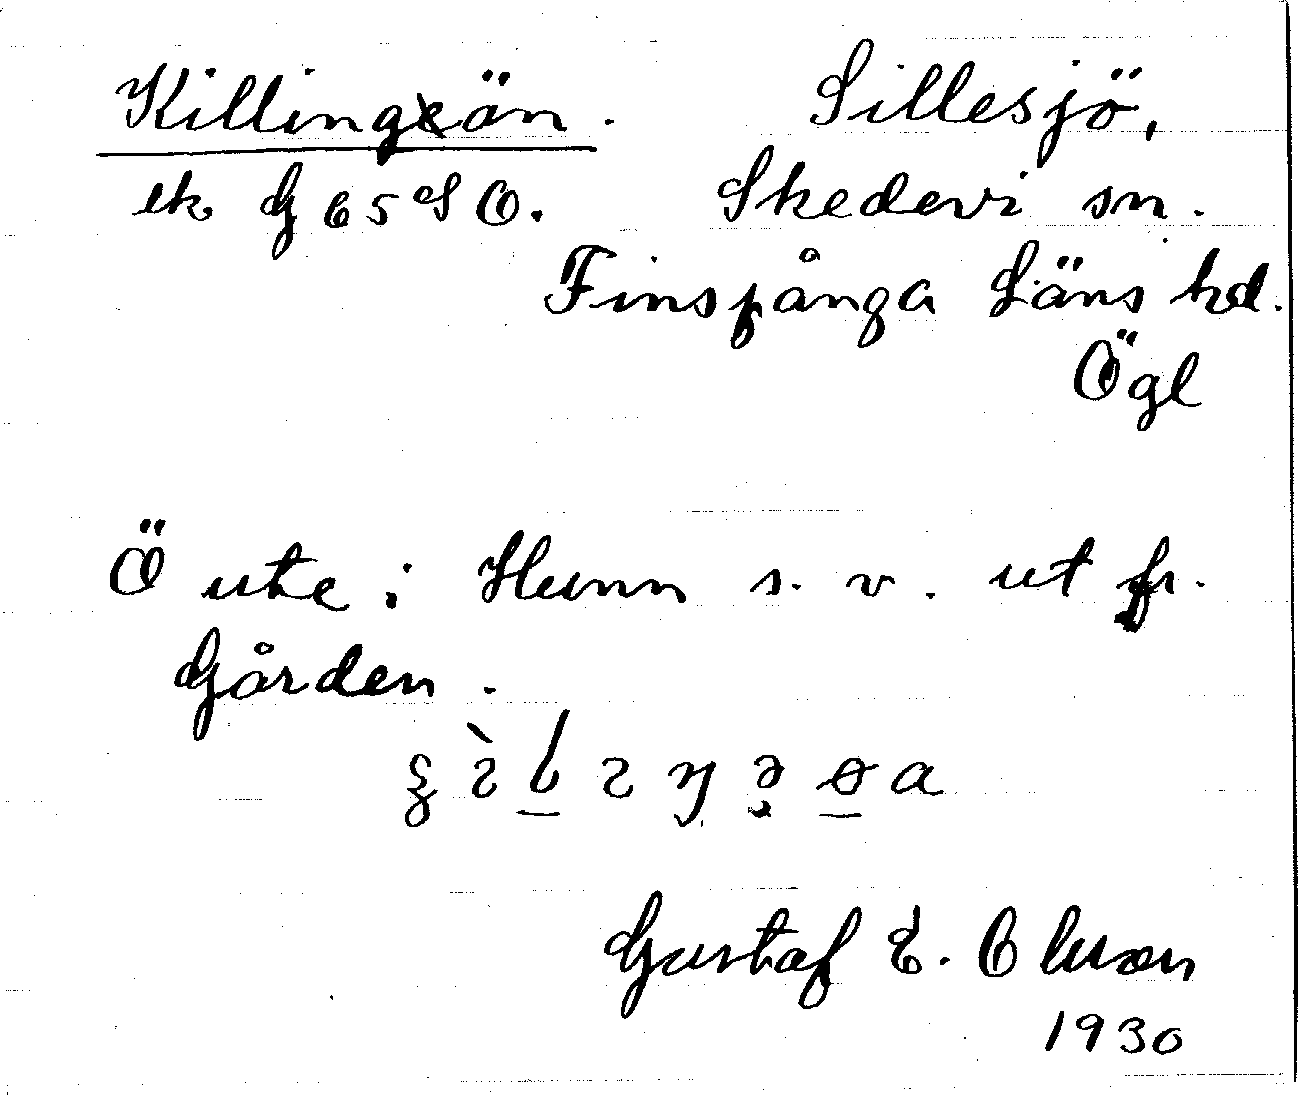 Killingeän. Sillesjö,
ek G 65 SO. Skedevi sn.
Finspånga Läns hd.
Ögl
Ö ute i Hunn s. v. ut fr.
Gården.
Gustaf E. Olsson
1930